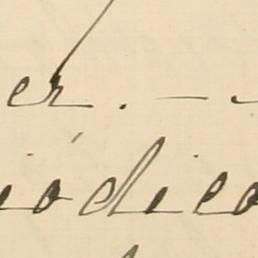 er. — -
iódico